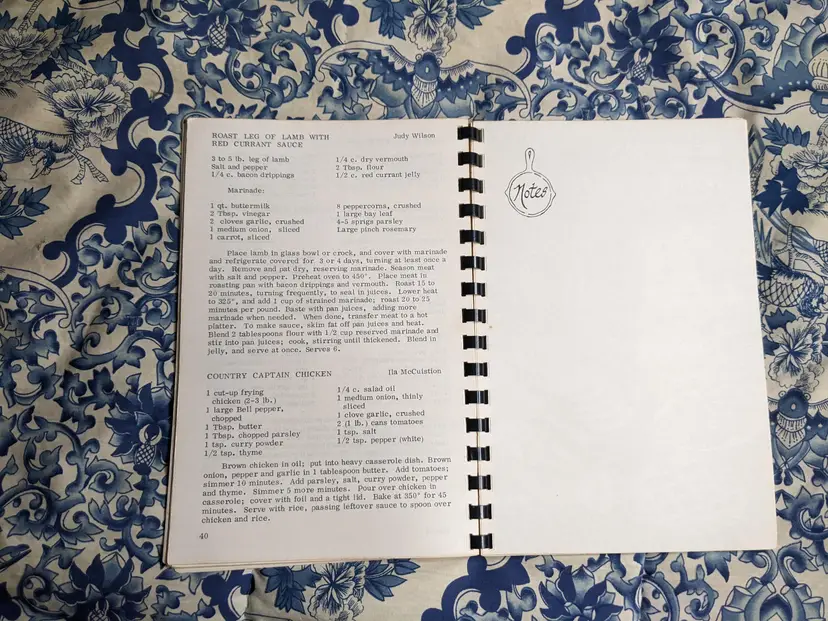 ROAST LEG OF LAMB WITH
RED CURRANT SAUCE
Judy Wilson
3 to 5 lb. leg of lamb
Salt and pepper
1/4 c. bacon drippings
1/4 c. dry vermouth
2 Tbsp. flour
1/2 c. red currant jelly
Marinade:
1 qt. buttermilk
2 Tbsp. vinegar
2 cloves garlic, crushed
1 medium onion, sliced
1 carrot, sliced
8 peppercorns, crushed
1 large bay leaf
4-5 sprigs parsley
Large pinch rosemary
Place lamb in glass bowl or crock, and cover with marinade
and refrigerate covered for 3 or 4 days, turning at least once a
day. Remove and pat dry, reserving marinade. Season meat
with salt and pepper. Preheat oven to 450°. Place meat in
roasting pan with bacon drippings and vermouth. Roast 15 to
20 minutes, turning frequently, to seal in juices. Lower heat
to 325°, and add 1 cup of strained marinade; roast 20 to 25
minutes per pound. Baste with pan juices, adding more
marinade when needed. When done, transfer meat to a hot
platter. To make sauce, skim fat off pan juices and heat.
Blend 2 tablespoons flour with 1/2 cup reserved marinade and
stir into pan juices; cook, stirring until thickened. Blend in
jelly, and serve at once. Serves 6.
COUNTRY CAPTAIN CHICKEN
Ila McCuistion
1 cut-up frying
chicken (2-3 lb.)
1 large Bell pepper,
chopped
1 Tbsp. butter
1 Tbsp. chopped parsley
1 tsp. curry powder
1/2 tsp. thyme
1/4 c. salad oil
1 medium onion, thinly
sliced
1 clove garlic, crushed
2 (1 lb.) cans tomatoes
1 tsp. salt
1/2 tsp. pepper (white)
Brown chicken in oil; put into heavy casserole dish. Brown
onion, pepper and garlic in 1 tablespoon butter. Add tomatoes;
simmer 10 minutes. Add parsley, salt, curry powder, pepper
and thyme. Simmer 5 more minutes. Pour over chicken in
casserole; cover with foil and a tight lid. Bake at 350° for 45
minutes. Serve with rice, passing leftover sauce to spoon over
chicken and rice.
40
Notes